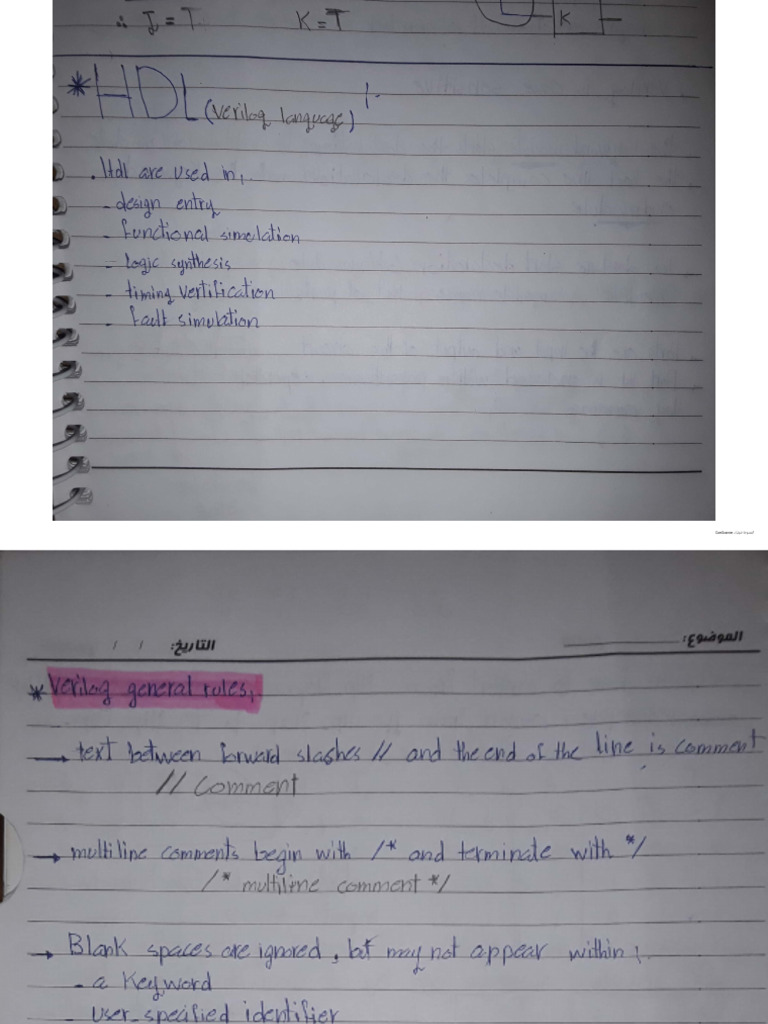 ∴ J = T K = T
K
* HDL (verilog language) :-
. Hdl are used in :-
- design entry
- functional simulation
- logic synthesis
- timing vertification
- fault simulation
CamScanner
الموضوع: التاريخ: / /
* Verilog general rules :
→ text between forward slashes // and the end of the line is comment
// Comment
→ multiline comments begin with /* and terminate with */
/* multiline comment */
→ Blank spaces are ignored, but may not appear within :
- a Keyword
- User-specified identifier